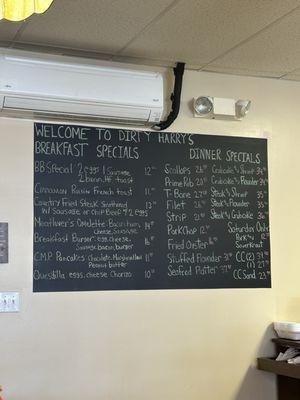 WELCOME TO DIRTY HARRY'S
BREAKFAST SPECIALS
BB Special 2 eggs 1 Sausage 12
2 bacon, HF, toast
Cinnamon Raisin French toast 11
Country Fried Steak Smothered 13
w/ Sausage or Chip Beef + 2 eggs
Meatlover's Omelette: Bacon, ham, 14
Cheese, Sausage
Breakfast Burger: egg, cheese, 16
Sausage, bacon, burger
C.M.P. Pancakes Chocolate, Marshmallow 11
Peanut butter
eggs, cheese, Chorizo 10
DINNER SPECIALS
Scallops 26
Prime Rib 23
T-Bone 27
Filet 26
Strip 21
Pork Chop 12
Fried Oyster
Stuffed Flounder 31
Seafood Platter 37
Crabcake + Shrimp 34
Crabcake + Flounder 34
Steak + Shrimp 35
Steak + Flounder 35
Steak + Crabcake 36
Saturday Only
Pork n' 12
Sauerkraut
CC (2) 39
(1) 27
CC Sand. 23